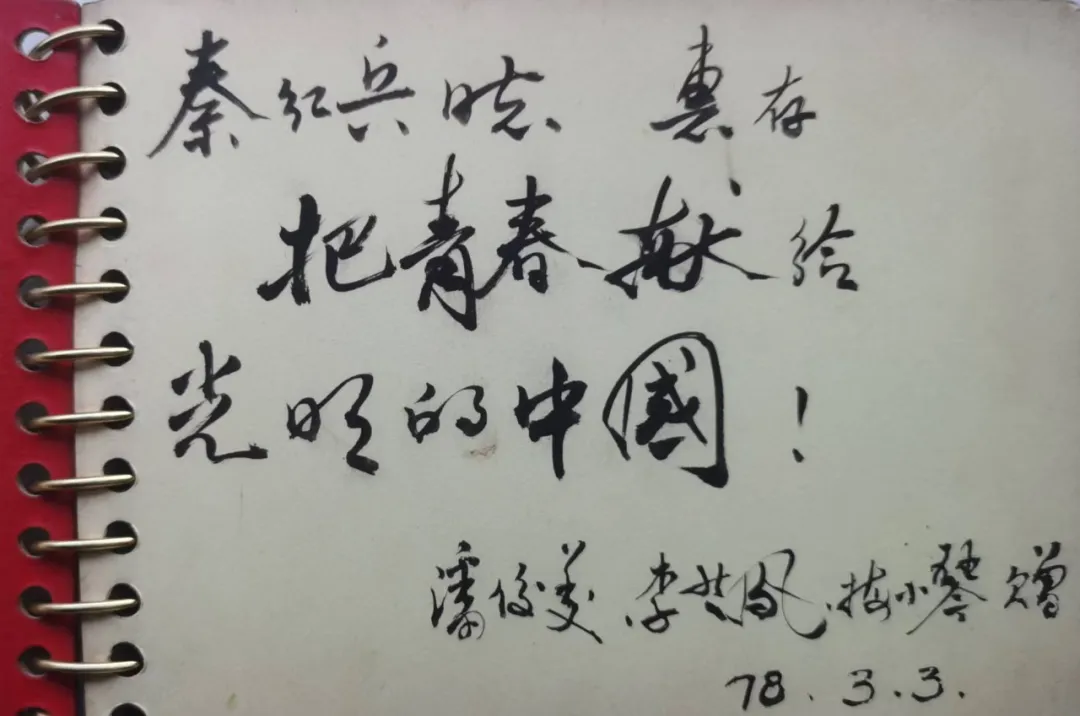 秦红兵同志 惠存
把青春献给
光明的中國！
潘俊美、李凤、梅小琴 赠
78.3.3.